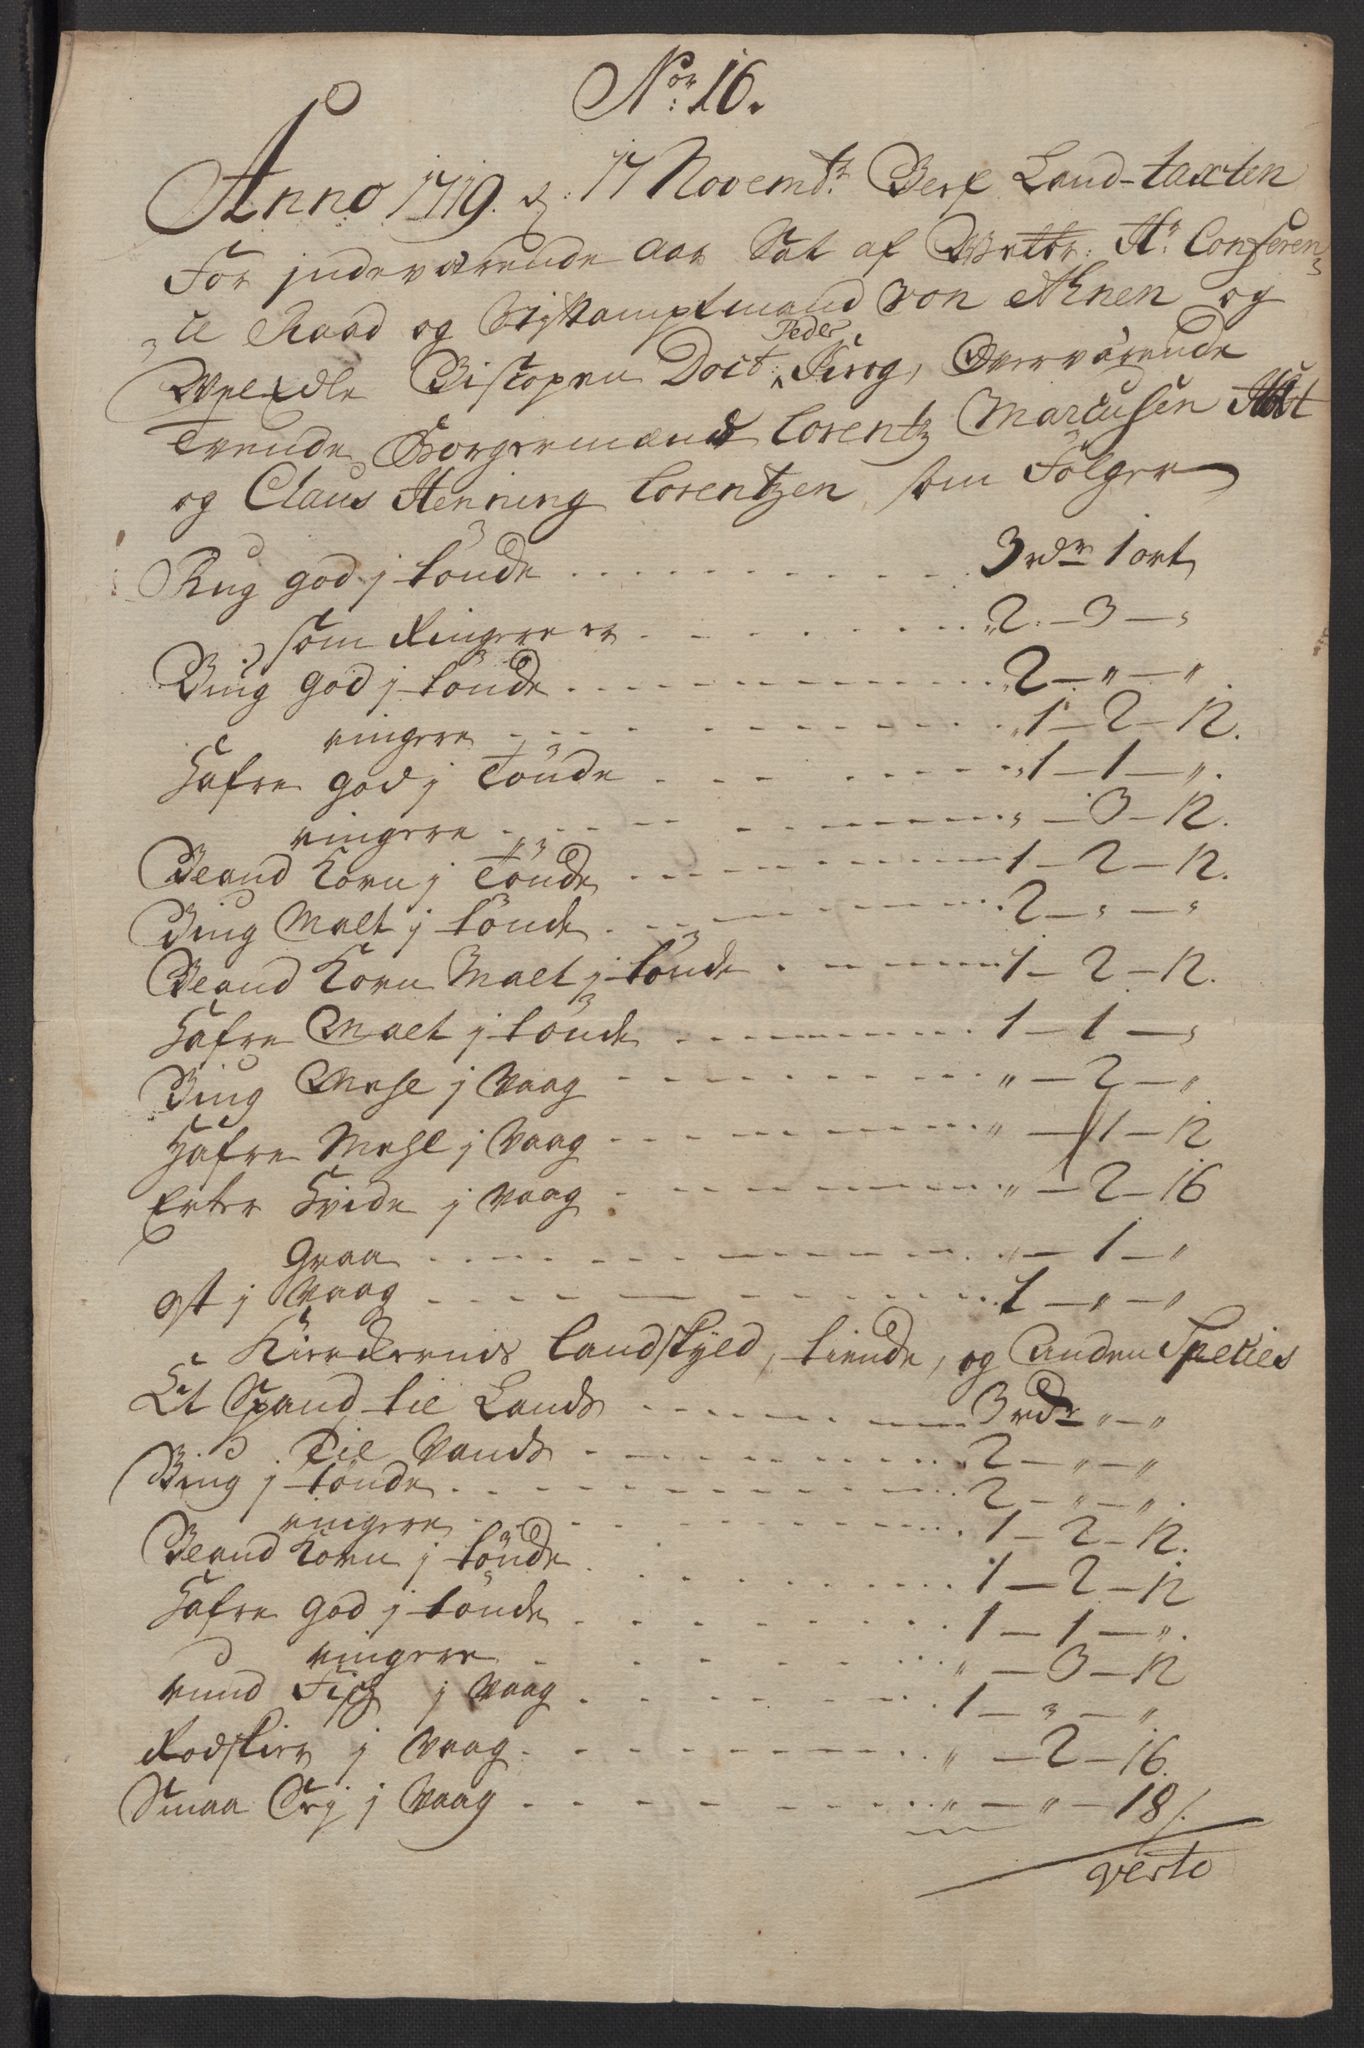 Nor: 16.
Anno 1719. d: 17 Novembr: Blef Land-taxten
For indeværende aar Sat af Hr Conferen-
ce Raad og Stiftamptmand von Ahnen og
WelEdle Biscopen Doct: Peder Krog, Overværende
Tvende Borgermænd Lorentz Marcusen Holst
og Claus Henning Lorentzen, som Følger
Rug god j tønde 3 rdr 1 ort
som Ringere er 2 - 3 - "
Biug god j tønde 2 - " - "
ringere 1 - 2 - 12.
Hafre god j Tønde 1 - 1 - ".
ringere " - 3 - 12.
Bland Korn j Tønde 1 - 2 - 12.
Biug Malt j tønde 2 - " - "
Bland Korn Malt j tønde 1 - 2 - 12.
Hafre Malt j tønde 1 - 1 - "
Biug Mehl j Vaag " - 2 - "
Hafre Mehl j Vaag " - 1 - 12
Erter Hvide j Vaag " - 2 - 16
Graa " - 1 - "
Ost j Vaag 1 - " - "
Kirckernes Landskyld, tiende, og Anden Species
Et Spand til Lands 3 rdr " - "
Til Vands 2 - " - "
Biug j tønde 2 - " - ".
ringere 1 - 2 - 12.
Bland Korn j tønde 1 - 2 - 12
Hafre god j tønde 1 - 1 - ".
ringere " - 3 - 12
rund Fisk j Vaag 1 - " - "
Rodskier j Vaag " - 2 - 16.
Smaa Sej j Vaag " - " - 18 /.
verte